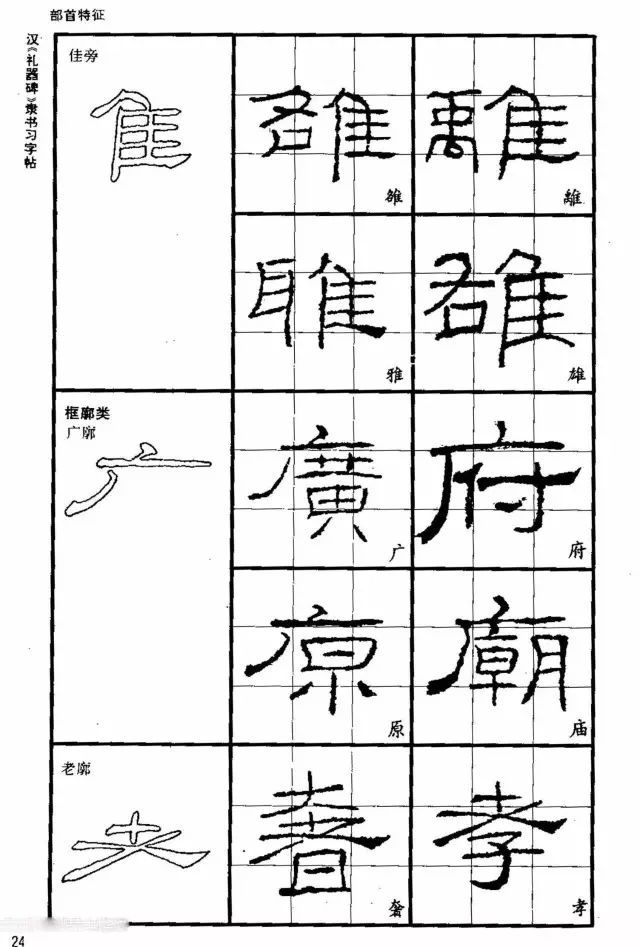 部首特征
汉《礼器碑》隶书习字帖
佳旁
雒 離
雒 離
雅 雄
雅 雄
框廓类
广廓
廣 府
广 府
原 廟
原 庙
老廓
孝
孝
24